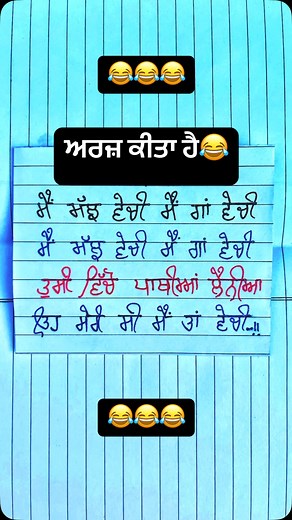 😂😂😂
ਅਰਜ਼ ਕੀਤਾ ਹੈ😂
ਮੈਂ ਮੱਝ ਵੇਚੀ ਮੈਂ ਗਾਂ ਵੇਚੀ
ਮੈਂ ਮੱਝ ਵੇਚੀ ਮੈਂ ਗਾਂ ਵੇਚੀ
ਤੁਸੀ ਵਿੱਚੋ ਪਾਥੀਆਂ ਲੈਨੀਆ
ਉਹ ਮੇਰੀ ਸੀ ਮੈਂ ਤਾਂ ਵੇਚੀ..!!
😂😂😂